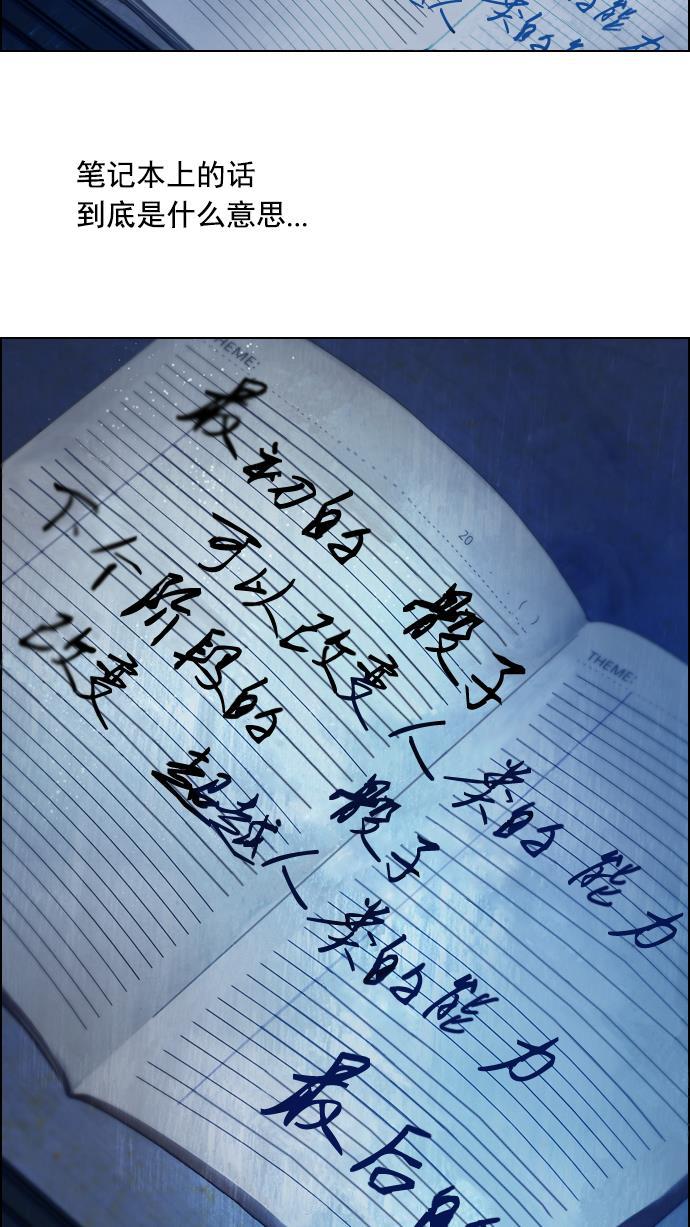 人类的能力
类的能力
笔记本上的话
到底是什么意思...
THEME:
最初的 骰子
20 . . ( )
可以改变人类的能力
下个阶段的 骰子
改变 超越人类的能力
THEME:
最后的